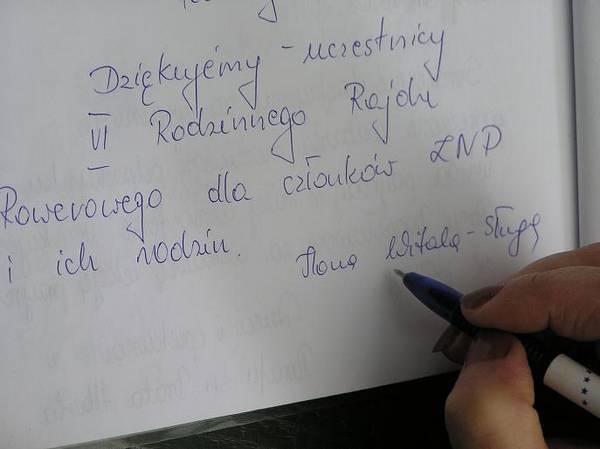 Dziękujemy - uczestnicy
VI Rodzinnego Rajdu
Rowerowego dla członków ZNP
i ich rodzin.
Ilona Witala - Sługę